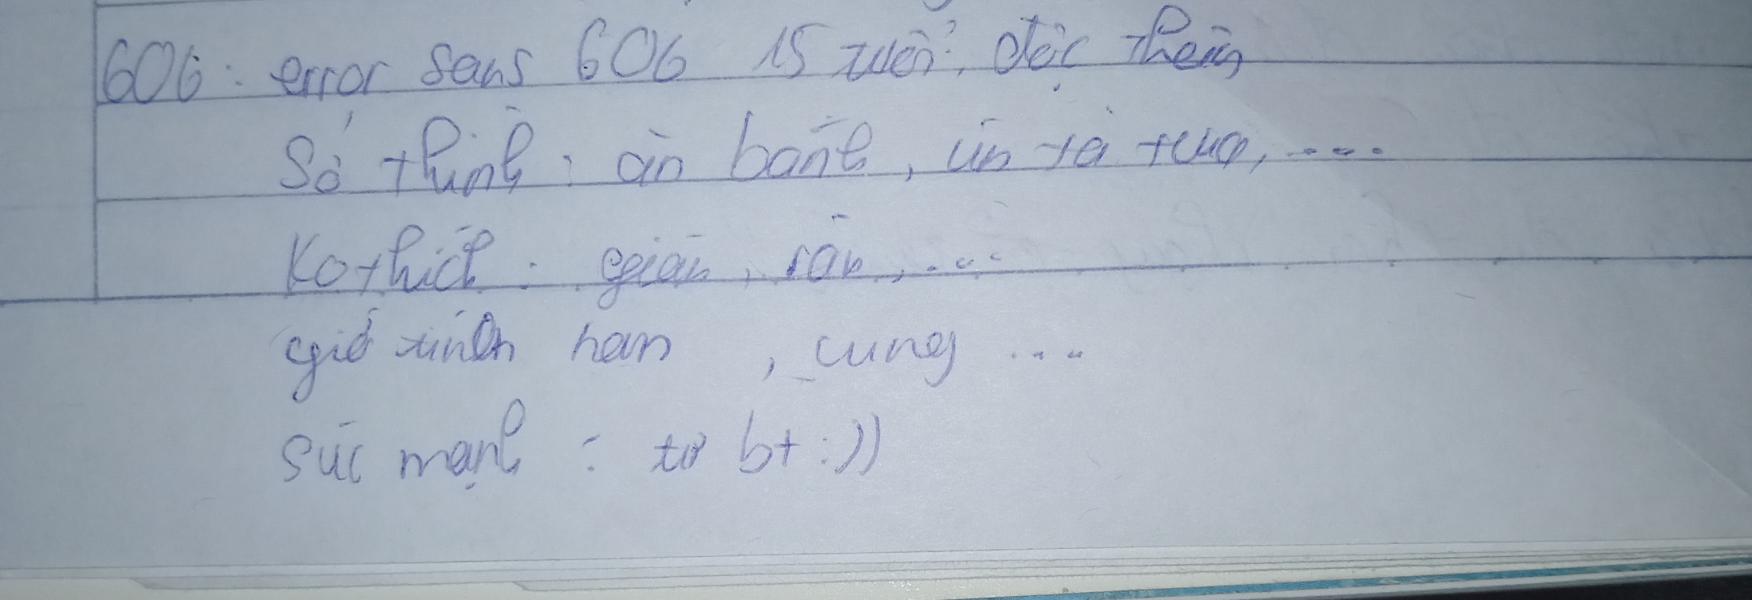 606: error sans 606 15 tuổi, độc thân
Sở thích: ăn bánh, uống trà sữa, ....
Ko thích: gián, rắn, ....
giớ tính nam, cung ....
sức mạnh: tự bt :))